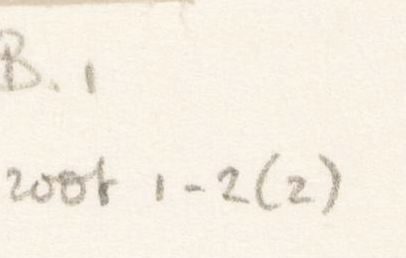 B. 1
200f 1-2(2)